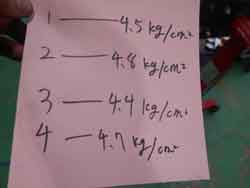 1 — 4.5 kg/cm²
2 — 4.8 kg/cm²
3 — 4.4 kg/cm²
4 — 4.7 kg/cm²